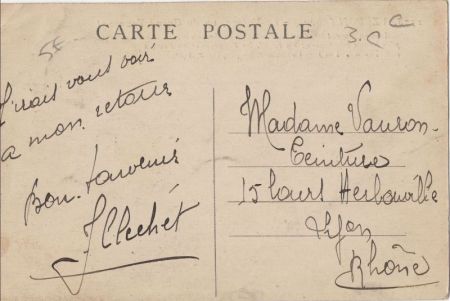 CARTE POSTALE
3.C C
J'irais vous voir
a mon retour
Bon souvenir
J Clechét
Madame Vauron
Teinture
15 Cours Herbouville
Lyon
Rhône